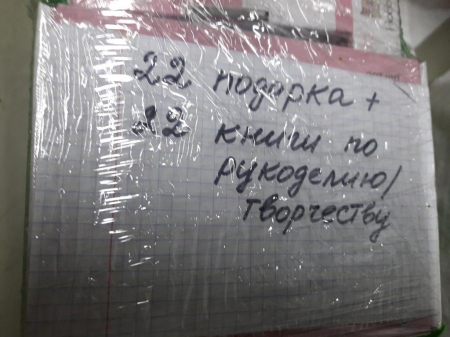 22 подарка +
12 книги по
рукоделию/
творчеству